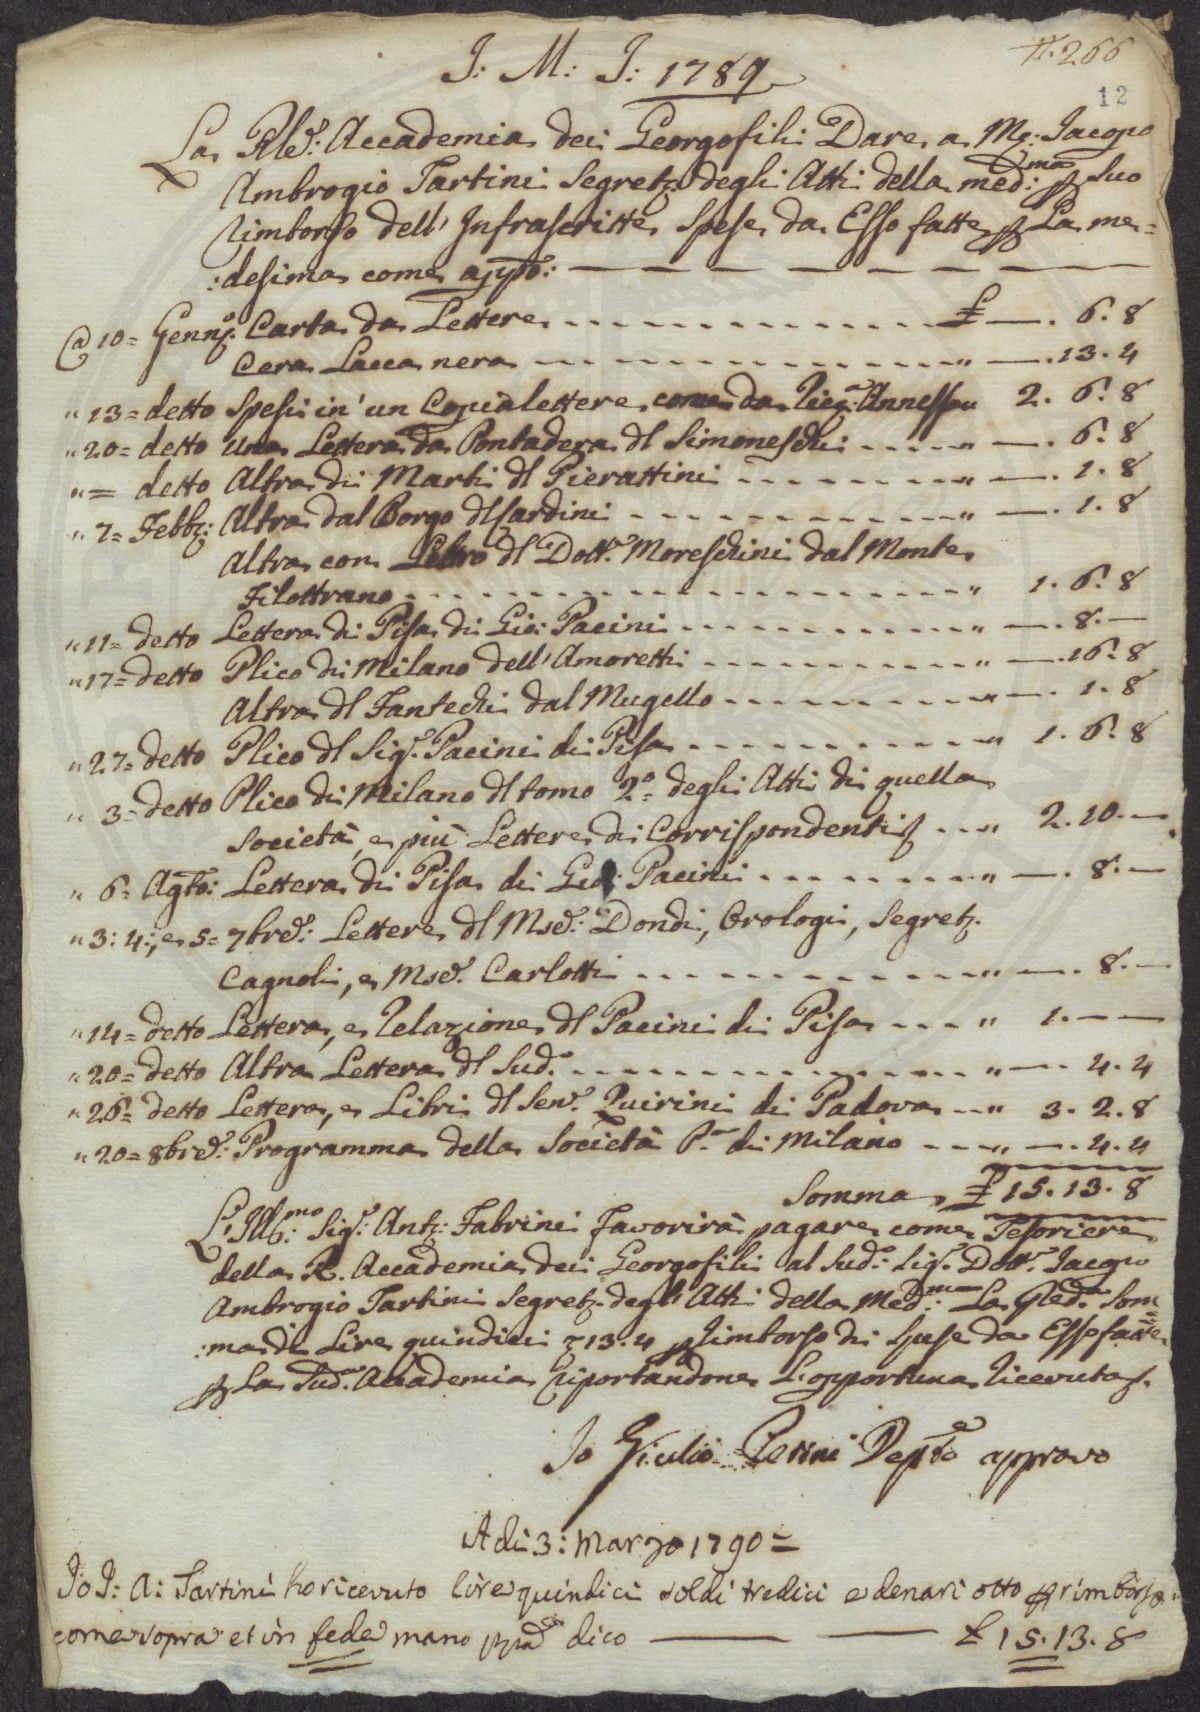 N.° 266
12
J: M: J: 1789
La Rle: Accademia dei Georgofili Dare a Mr: Jacopo
Ambrogio Tartini Segret.° degli Atti della med:ma p suo
Rimborso dell' Infrascritte Spese da Esso fatte p La me=
:desima come app.°:
@ 10= Genn.°: Carta da Lettere £ —. 6. 8
Cera Lacca nera " —. 13. 4
" 13= detto Spesi in' un Copialettere come da Ric.a Annessa " 2. 6. 8
" 20= detto Una Lettera da Pontadera dl Simoneschi " —. 6. 8
" = detto Altra di Marti dl Pierattini " —. 1. 8
" 7= Febb.°: Altra dal Borgo dl Sardini " —. 1. 8
Altra con Libro dl Dott.e Moreschini dal Monte
Filottrano " 1. 6. 8
" 11= detto Lettera di Pisa di Gio: Pacini " —. 8. —
" 17= detto Plico di Milano dell' Amoretti " —. 16. 8
Altra dl Fantechi dal Mugello " —. 1. 8
" 27= detto Plico dl Sig.e Pacini di Pisa " 1. 6. 8
" 3= detto Plico di Milano dl tomo 2.° degli Atti di quella
Società, e più Lettere di Corrispondenti " 2. 10. —
" 6= Agto: Lettera di Pisa di Gio: Pacini " —. 8. —
" 3: 4:, e 5= 7bre: Lettere dl Mse: Dondi, Orologi, Segret.°
Cagnoli, e Mse. Carlotti " —. 8. —
" 14= detto Lettera, e Relazione dl Pacini di Pisa " 1. — —
" 20= detto Altra Lettera dl Sud.° " —. 4. 4
" 26= detto Lettera, e Libri dl Sen.e Quirini di Padova " 3. 2. 8
" 20= 8bre: Programma della Società P.a di Milano " —. 4. 4
Somma £ 15. 13. 8
L'Ill:mo Sig.e: Ant.°: Fabrini Favorirà pagare come Tesoriere
della R. Accademia dei Georgofili al Sud.° Sig.e Dott.e Jacopo
Ambrogio Tartini Segret.° degl' Atti della Med:ma La Sud.a Som=
:ma di Lire quindici e 13. 4 p Rimborso di Spese da Esso fatte
p La Sud.a Accademia Riportandone L'opportuna Ricevuta.
Io Giulio Perini Dep.to approvo
A di 3: Marzo 1790 =
Io J: A: Tartini ho ricevuto lire quindici soldi tredici e denari otto p rimborso
come sopra et in fede mano ppa dico £ 15. 13. 8